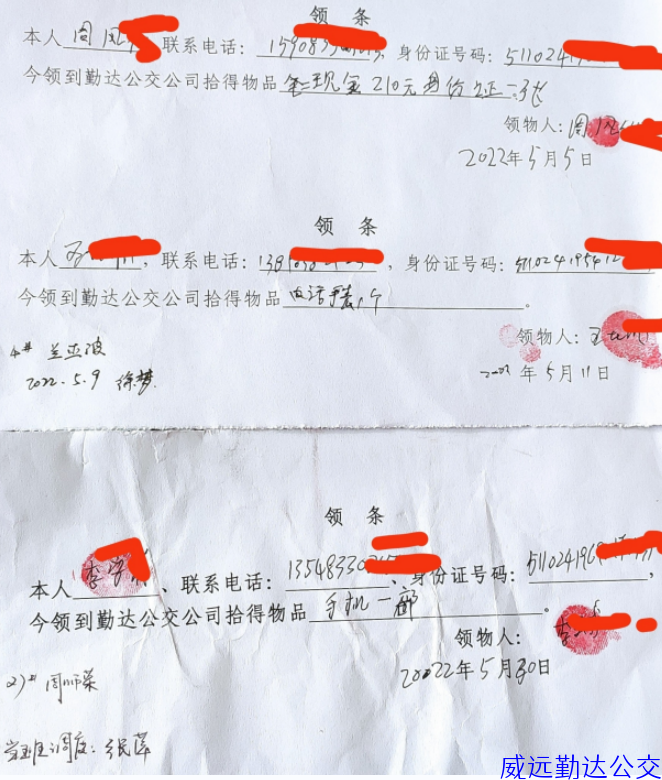 领 条
本人 周凤 联系电话: 身份证号码: 511024
今领到勤达公交公司拾得物品 现金210元身份证一张
领物人: 周
2022年5月5日
领 条
本人 , 联系电话: , 身份证号码: 511024195412
今领到勤达公交公司拾得物品 电话手表1个 。
领物人: 王
4# 兰亚波
2022.5.9 徐梦
2022年5月11日
领 条
本人 李学 、联系电话: 13548330 、身份证号码: 511024196 ,
今领到勤达公交公司拾得物品 手机一部 。
领物人: 李
2022年5月30日
21# 周师荣
当班调度: 张萍
威远勤达公交